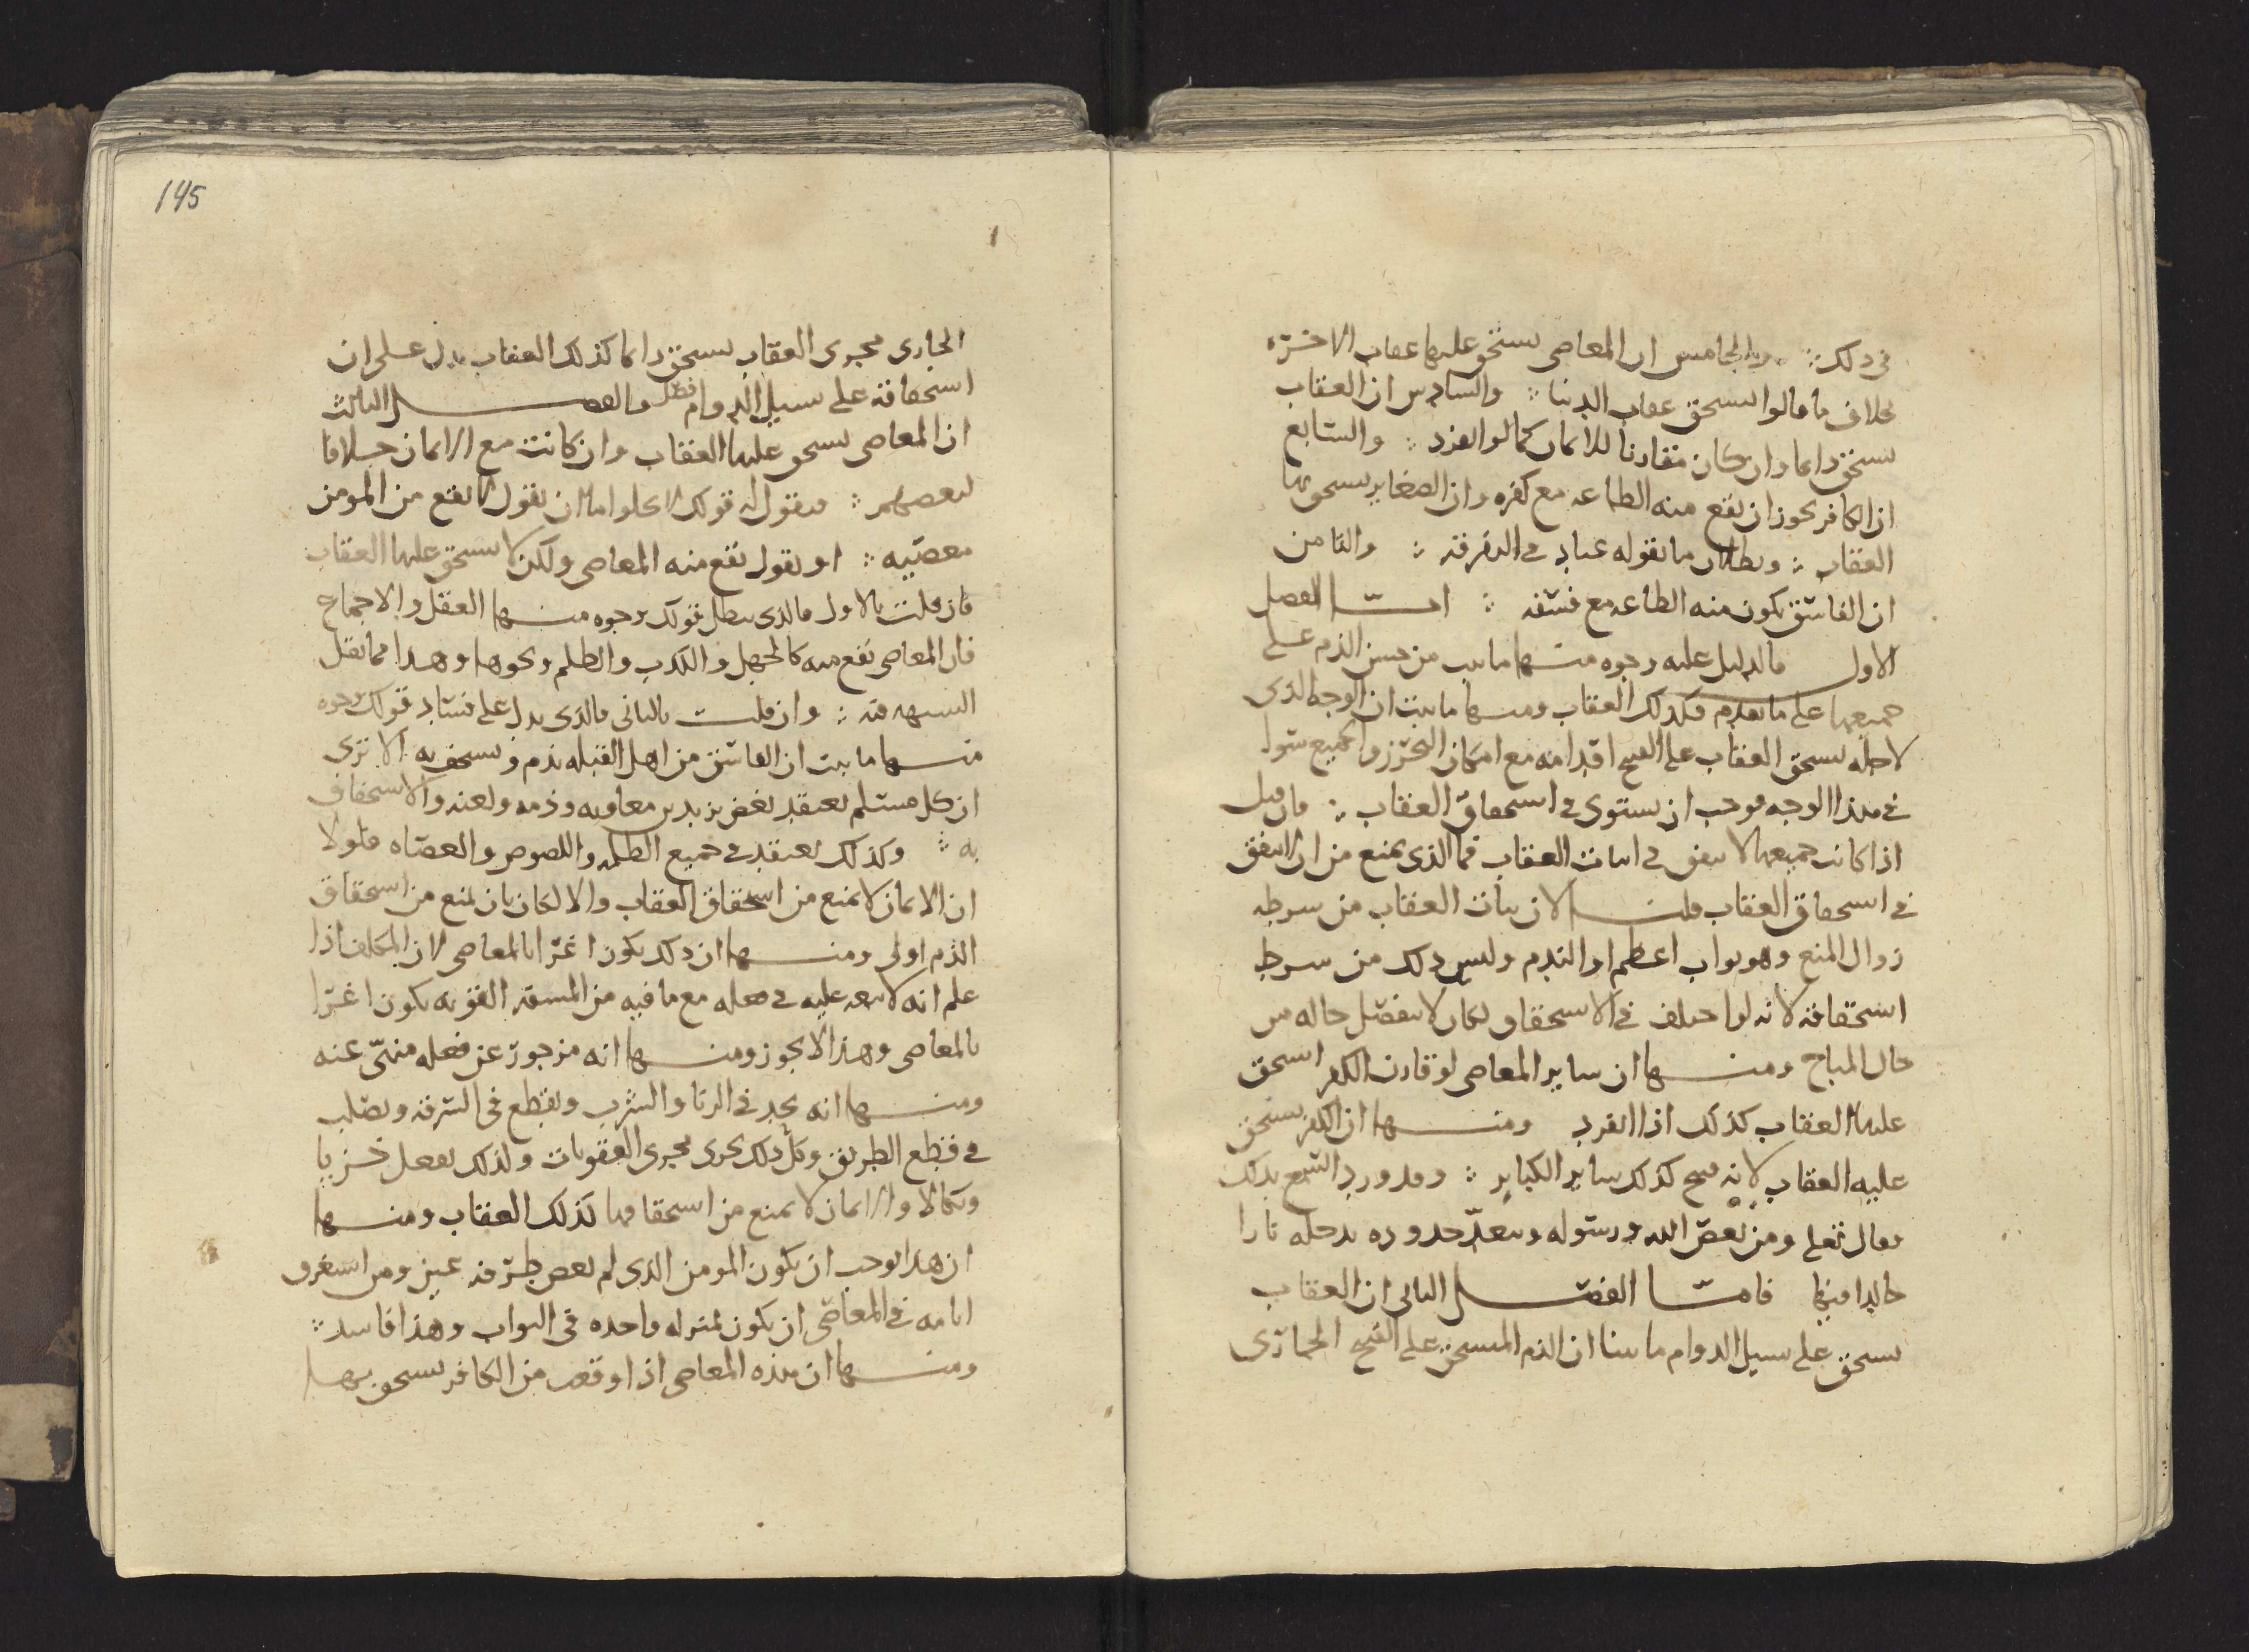 في ذلك ؞ والخامس ان المعاصي يستحق عليها عقاب الاخرة
بخلاف ما قالوا يستحق عقاب الدنيا ؞ والسادس ان العقاب
يستحق دايما وان كان مقارنا للايمان كما لو انفرد ؞ والسابع
ان الكافر يجوز ان تقع منه الطاعه مع كفره وان الصغاير يستحق بها
العقاب ؞ وبطلان ما يقوله عباد في التفرقة ؞ والثامن
ان الفاسق تكون منه الطاعه مع فسقه ؞ امّا الفصل
الاول فالدليل عليه وجوه منها ما ثبت من حسن الذم على
جميعها على ما تقدم فكذلك العقاب ومنها ما بينت ان الوجه الذي
لاجله يستحق العقاب على القبيح اقدامه مع امكان التحرز والجميع سوا
في هذا الوجه فوجب ان يستوي في استحقاق العقاب ؞ فان قيل
اذا كانت جميعها لا يتفق في اثبات العقاب فما الذي يمنع من ان لا يتفق
في استحقاق العقاب قلنا لان ثبات العقاب من شرطه
زوال المنع وهو ثواب اعظم او الندم وليس ذلك من شرط
استحقاقه لانه لو اختلف في الاستحقاق لكان لا ينفصل حاله من
حال المباح ومنها ان ساير المعاصي لو قارن الكفر استحق
عليها العقاب كذلك اذا انفرد ومنها ان الكفر يستحق
عليه العقاب لانه قبيح كذلك ساير الكباير ؞ وقد ورد السمع بذلك
فقال تعلى ومن يعص الله ورسوله ويتعدّ حدوده يدخله نارا
خالدا فيها فامّا الفصل الثاني ان العقاب
يستحق على سبيل الدوام ما بينا ان الذم المستحق على القبيح الجاري
145
الجاري مجرى العقاب يستحق دايما كذلك العقاب يدل على ان
استحقاقه على سبيل الدوام فصل والفصل الثالث
ان المعاصي يستحق عليها العقاب وان كانت مع الايمان خلافا
لبعضهم ؞ فنقول له قولك لا يخلوا اما ان تقول لا يقع من المومن
معصيه ؞ او تقول تقع منه المعاصي ولكن لا يستحق عليها العقاب
فان قلت بالاول فالذي يبطل قولك وجوه منها العقل والاجماع
فان المعاصي تقع منه كالجهل والكذب والظلم ونحوها وهذا مما تقل
الشبهه فيه ؞ وان قلت بالثاني فالذي يدل على فساد قولك وجوه
منها ما ثبت ان الفاسق من اهل القبله يذم ويستخف به الا ترى
ان كل مسلم يعتقد بغض يزيد بن معاويه وذمه ولعنه والاستخفاف
به ؞ وكذلك يعتقد في جميع الظلمه واللصوص والعصاه فلولا
ان الايمان لا يمنع من استحقاق العقاب والا لكان بان يمنع من استحقاق
الذم اولى ومنها ان ذلك يكون اغرا بالمعاصي لان المكلف اذا
علم انه لا تبعه عليه في فعله مع ما فيه من المشقه القويه يكون اغرا
بالمعاصي وهذا لا يجوز ومنها انه مزجور عن فعله منهيّ عنه
ومنها انه يحد في الزنا والشرب ويقطع في السرقه ويصلب
في قطع الطريق وكل ذلك يجرى مجرى العقوبات ولذلك يفعل خزيا
ونكالا والايمان لا يمنع من استحقاقها كذلك العقاب ومنها
ان هذا يوجب ان يكون المومن الذي لم يعص طرفه عين ومن استغرق
ايامه في المعاصي ان يكون بمنزله واحده في الثواب وهذا فاسد ؞
ومنها ان هذه المعاصي اذا وقعت من الكافر يستحق بها